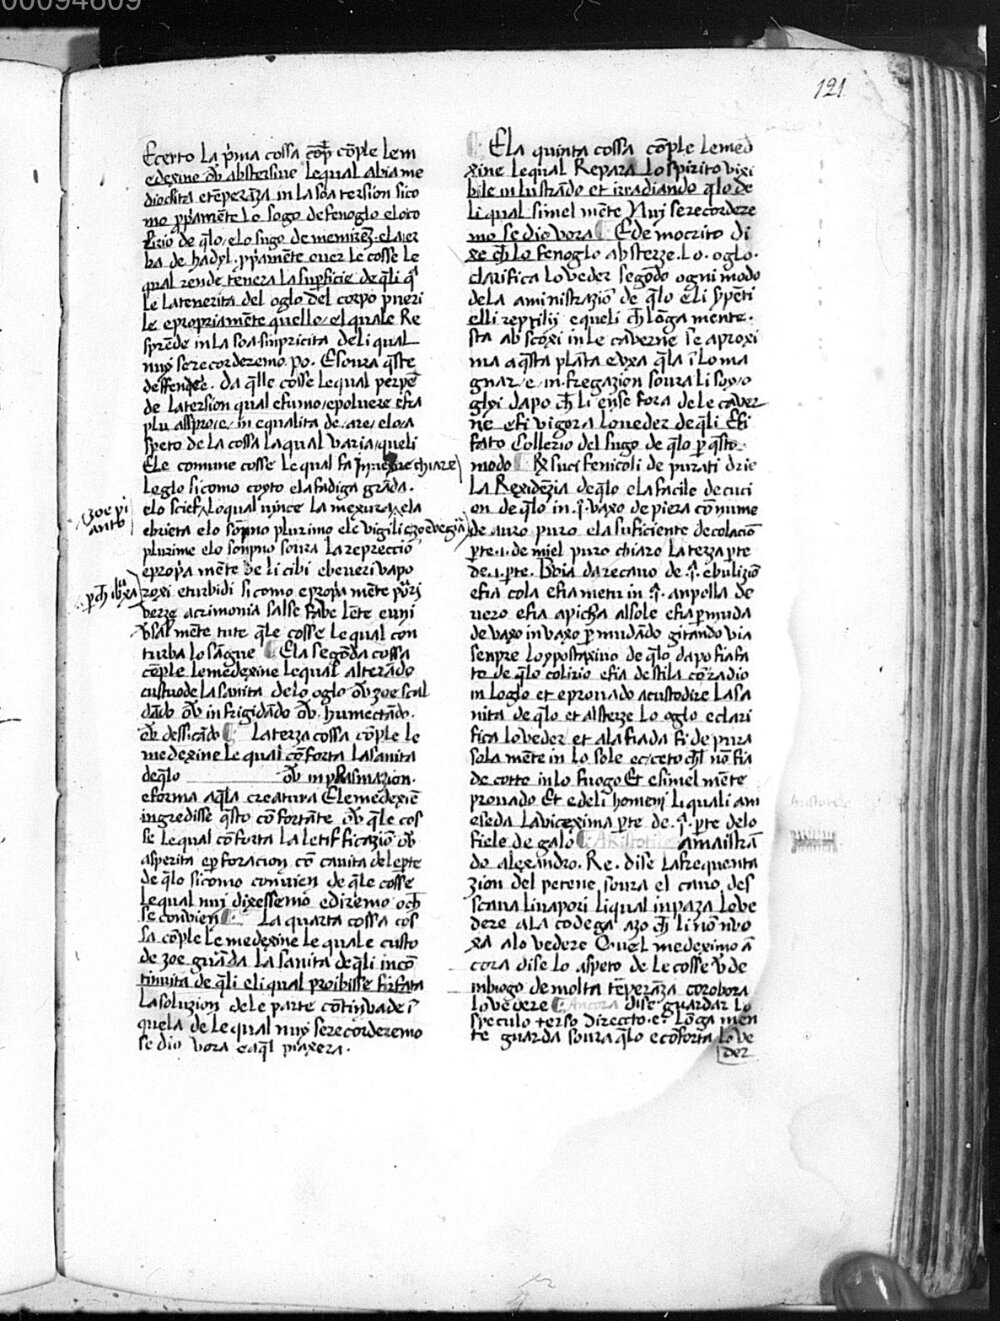 00094609
121
Ecerto La pͥma cossa cop̄ cōple lem
edexine ov̄ abstersiue lequal abia me
diochita etēperāza in la soa tersion sico
mo ppͥamēte lo sogo de fenoglo eloro
de qͣlo, elo sugo de
ba de hadyl. ppͥamēte euer le cosse le
qual rende tenera la supficie de qͣli qͣ
le latenerita del oglo del corpo pueri
le epropriamēte quello, elquale Re
sprēde in la soa sinpricita deli qual
nuy serecorderemo. po. Esoura qͣste
deffendēe. da qͣlle cosse lequal perpe
de latersion qual efumo, epoluere efia
plu asspro, e, in equalita de, are, eloa
speto de la cossa laqual varia, queli
Ele comune cosse le qual fa chiare
Loglo sicomo coyto elafadiga grāda.
elo loqual uince la mexura, ela
izoe pi
anto
ebrieta elo sonno plurimo ele vigilie zoe vegiā
plurime elo sonno soura la repreccio
eprop̃a mēte de li cibi ebeueri vapo
roxi eturbidi sicomo epropͣa mēte pͦri
acrimonia salse fabe lēte euni
v̄sal mēte tute qͣle cosse lequal con
turba lo sangue Ela segōda cossa
cōple lemedexine lequal alterādo
custuode la sanita delo oglo ov̄ zoe scal
dādo ov̄ infrigidādo ov̄. humectādo.
ov̄ dessicādo La terza cossa cōple le
medexine le qual cōforta la sanita
deqͣlo ov̄ in plasmazion.
eforma aqͣla creatura Ele medexiē
ingredisse qͣsto cōfortāte ov̄ qͣle cos
se lequal cōforta la letificazio ov̄
asperita epforacion cō cauita dele pte
de qͣlo sicomo convien de qͣle cosse
lequal nui dixessemo ediremo och̄
se convien La quarta cossa cos
sa cōple le medexine le quale custo
de zoe guāda la sanita de qͣli incō
tinuita de qͣli eli qual proibisse
la soluzion dele parte cōtinuade ī
quela de le qual nuy serecorderemo
se dio vora eaqͣl piaxera.
Ela quinta cossa cōple lemed
xine lequal Repara lo spirito vixi
bile inlustrādo et irradiando qͣlo de
li qual simel mēte Nuy serecordere
mo se dio vora Edemocrito di
xe ch̄ lo fenoglo absterze. lo. oglo.
clarifica lo veder segōdo ogni modo
dela aministrazio de qͣlo eli sp̄enti
elli reptilij equeli ch̄ lōga mente.
sta abscoxi in le caverne se aproxi
ma aqͣsta plāta euxa qͣla ī lo ma
gnar, e, in fregazion soura li soy, o
glyi dapo ch̄ li ense fora de le cauer
ne efi vigora lo ueder de qͣli Efi
fato Collerio del sugo de qͣlo p qͣsto
modo suci fenicoli depurati drie
la Rexidēzia de qͣlo ela facile decuci
on de qͣlo in. j. vaxo de piera cōmume
de auro puro ela suficiente decolacio
pte. 1. de miel puro chiaro la terza pte
de. 1. pte. Boia da recauo de .j. ebulizio
efia cola efia metu in .j. anpolla de
uero efia apicha alsole efia pmuda
de vaxo in vaxo p mudādo gitando via
senpre loypostaxino de qͣlo dapo fiafa
to de qͣlo colirio efia destila cō radio
in loglo et eprouado acustodire la sa
nita de qͣlo et absterze lo oglo eclari
fica lo veder et ala fiada fi depura
sola mēte in lo sole ecceto ch̄l nō fia
de cotto inlo fuogo Et esimel mēte
prouado Et edeli homeni li quali am
eseda la vicexima pte de .j. pte delo
fiele de galo amaistrā
do alexandro. Re. dise la frequenta
zion del petene soura el cauo, des
scaua li vapori liqual inpaza lo ve
dere ala codega azo ch̄ li nō nuo
xa alo vedere Quel medeximo ā
cora dise lo aspeto de le cosse v̄de
inbiogo de molta tēperāza corobora
lo vedere Ancora dise guardar lo
speculo terso directo. e. lōga men
te guarda soura qͣlo ecōforta lo ve
der